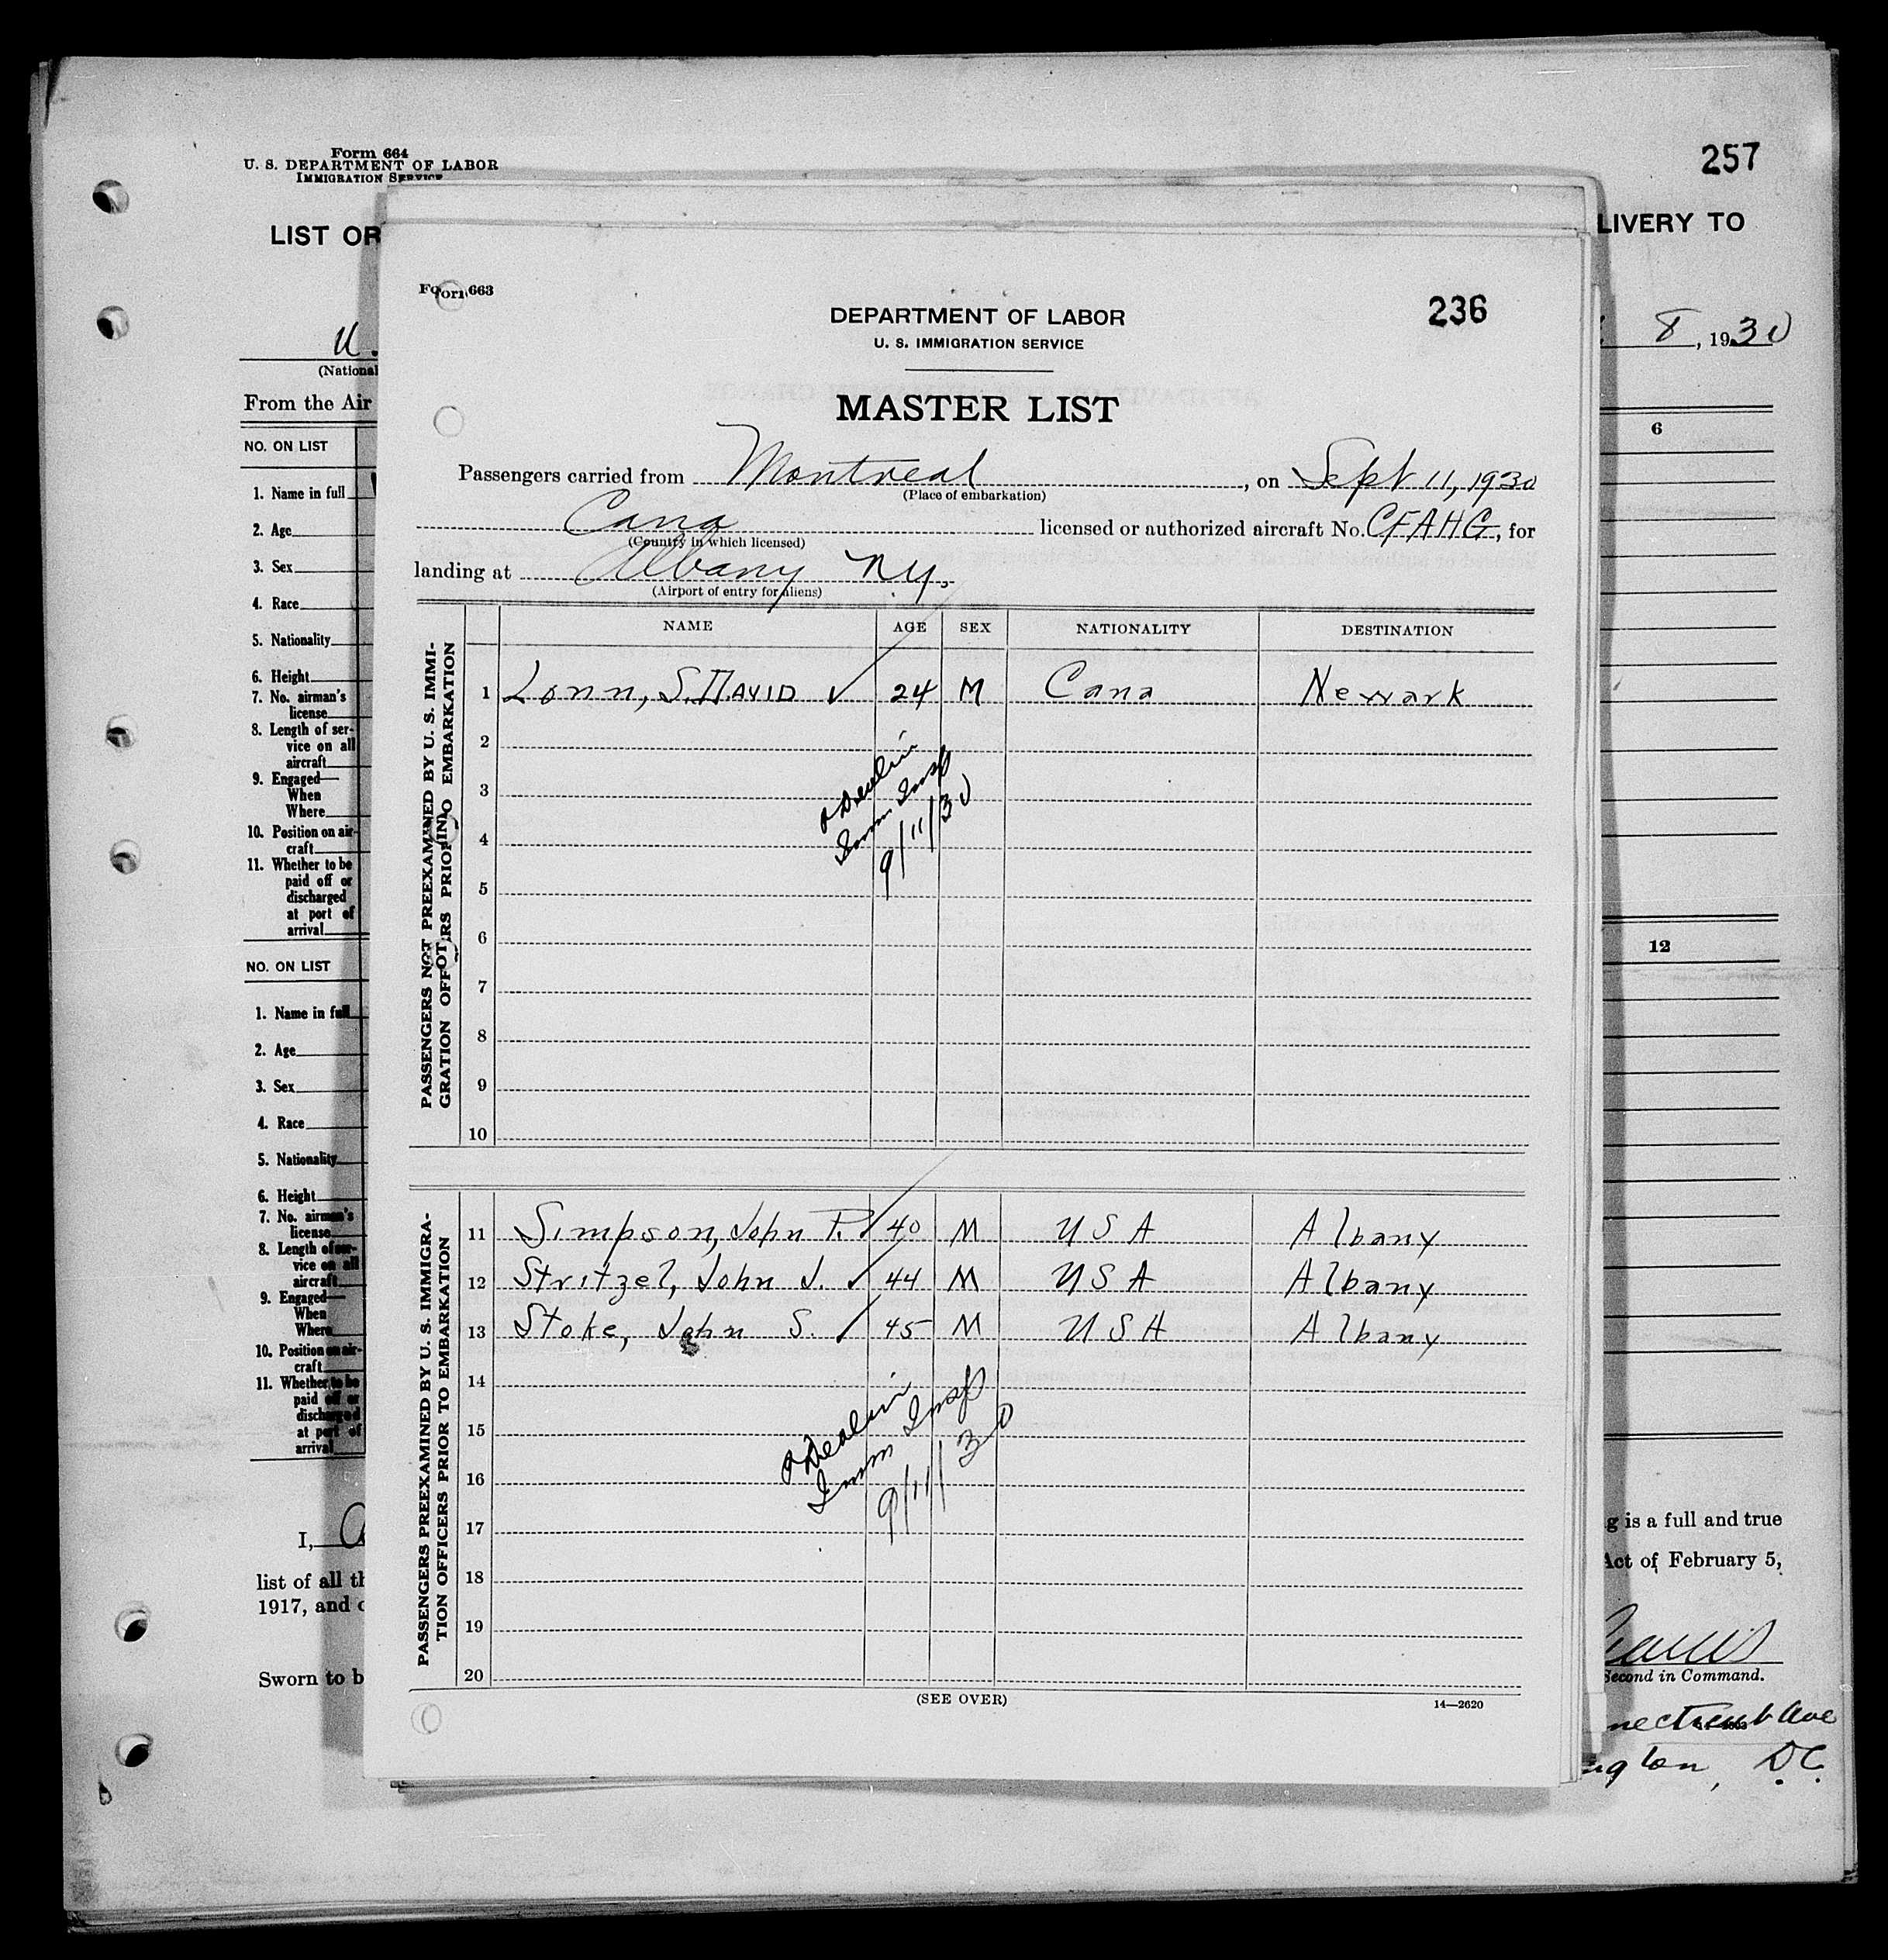 Form 664
U. S. DEPARTMENT OF LABOR
IMMIGRATION SERVICE
257
LIST OR
LIVERY TO
U.
8, 1930
(National
From the Air
NO. ON LIST
6
1. Name in full
2. Age
3. Sex
4. Race
5. Nationality
6. Height
7. No. airman's
license
8. Length of ser-
vice on all
aircraft
9. Engaged—
When
Where
10. Position on air-
craft
11. Whether to be
paid off or
discharged
at port of
arrival
NO. ON LIST
12
1. Name in full
2. Age
3. Sex
4. Race
5. Nationality
6. Height
7. No. airman's
license
8. Length of ser-
vice on all
aircraft
9. Engaged—
When
Where
10. Position on air-
craft
11. Whether to be
paid off or
discharged
at port of
arrival
I,
g is a full and true
list of all th
Act of February 5,
1917, and
Sworn to b
Second in Command.
necticut Ave
ngton, D.C.
Form 663
236
DEPARTMENT OF LABOR
U. S. IMMIGRATION SERVICE
MASTER LIST
Passengers carried from Montreal, on Sept 11, 1930
(Place of embarkation)
Cana licensed or authorized aircraft No. CFAHG, for
(Country in which licensed)
landing at Albany N.Y.
(Airport of entry for aliens)
NAME AGE SEX NATIONALITY DESTINATION
PASSENGERS NOT PREEXAMINED BY U. S. IMMI-
GRATION OFFICERS PRIOR TO EMBARKATION
1 Lonn, S. DAVID ✓ 24 M Cana Newark
2
3
4
Imm Insp
9/11/30
5
6
7
8
9
10
PASSENGERS PREEXAMINED BY U. S. IMMIGRA-
TION OFFICERS PRIOR TO EMBARKATION
11 Simpson, John P. ✓ 40 M USA Albany
12 Stritzel, John J. ✓ 44 M USA Albany
13 Stoke, John S. ✓ 45 M USA Albany
14
15
16
Imm Insp
9/11/30
17
18
19
20
(SEE OVER)
14—2620